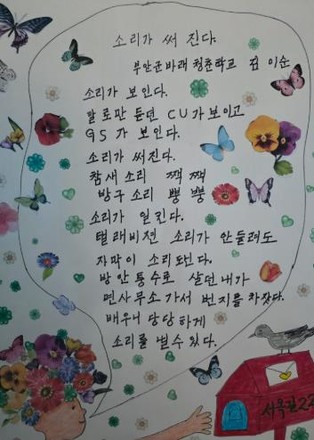 소리가 써 진다
부안군바래 청춘학교 김 이순
소리가 보인다.
말로만 듣던 CU가보이고
GS 가 보인다.
소리가 써진다.
참새소리 짹짹
방구소리 뿡뿡
소리가 읽힌다.
텔래비젼 소리가 안들려도
자막이 소리 되넌다.
방안퉁수로 살던내가
면사무소가서 번지를 차잣다.
배우니 당당하게
소리를 낼수있다.